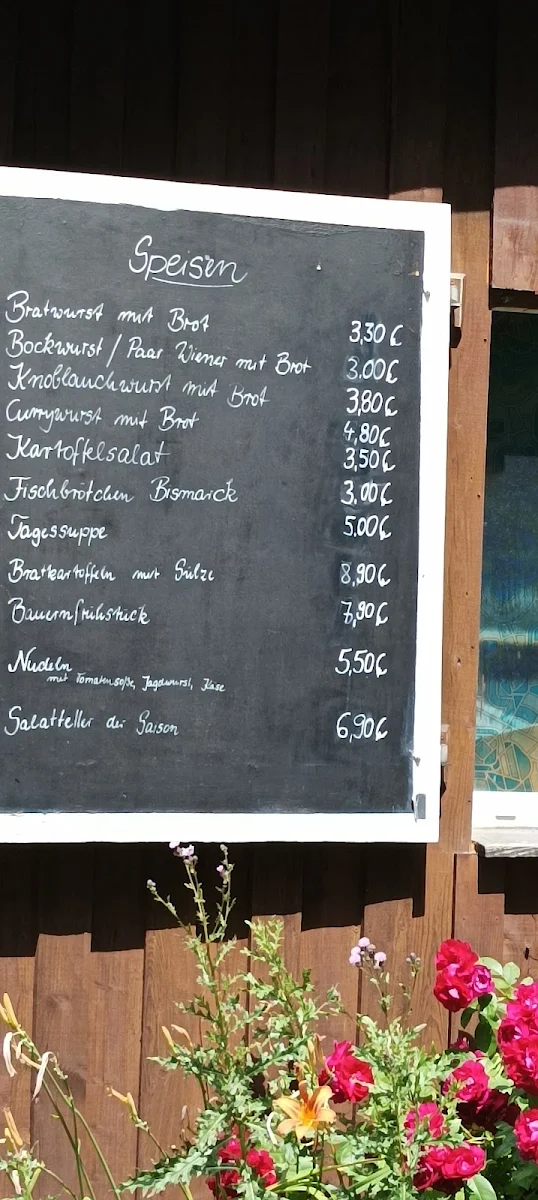 Speisen
Bratwurst mit Brot 3,30 €
Bockwurst / Paar Wiener mit Brot 3.00€
Knoblauchwurst mit Brot 3,80€
Currywurst mit Brot 4,80€
Kartoffelsalat 3,50€
Fischbrötchen Bismarck 3,00€
Tagessuppe 5.00€
Bratkartoffeln mit Sülze 8,90€
Bauernfrühstück 7,90€
Nudeln 5,50€
mit Tomatensoße, Jagdwurst, Käse
Salatteller der Saison 6,90€